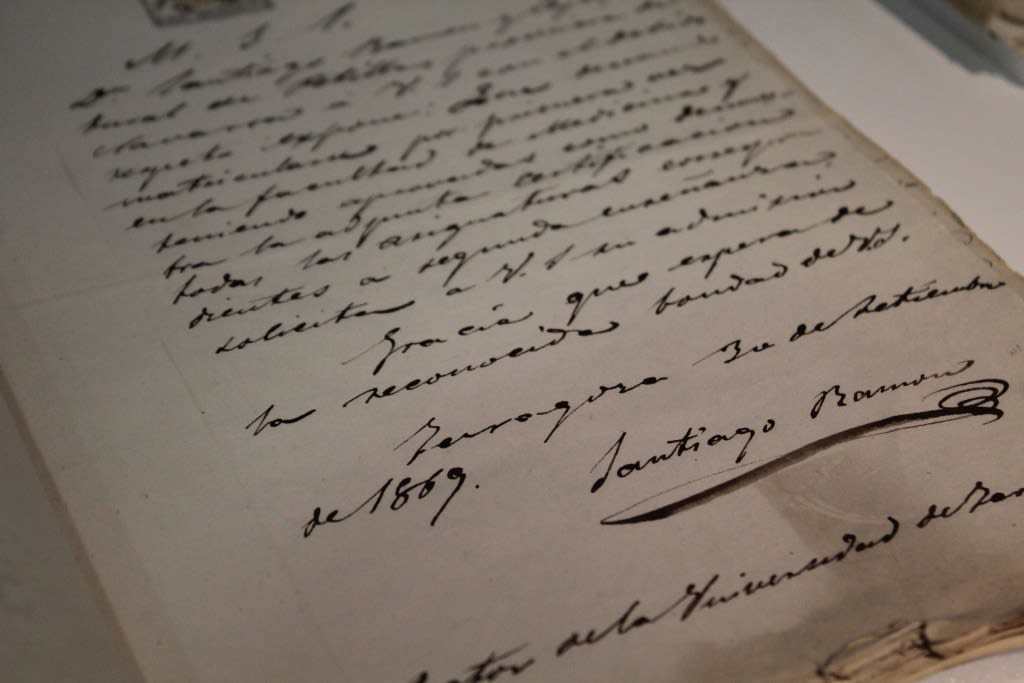 M. I. S.
Dn. Santiago Ramon y
tural de Petilla, provincia de
Navarra a V. S. con el debido
respeto expone: Que deseando
matricularse por primera vez
en la facultad de Medicina y
teniendo aprobadas como demues-
tra la adjunta certificacion
todas las asignaturas correspon-
dientes a segunda enseñanza;
solicita a V. S su admisión
Gracia que espera de
la reconocida bondad de V.S.
Zaragoza 30 de Setiembre
de 1869.
Santiago Ramon
ctor de la Universidad de Zar